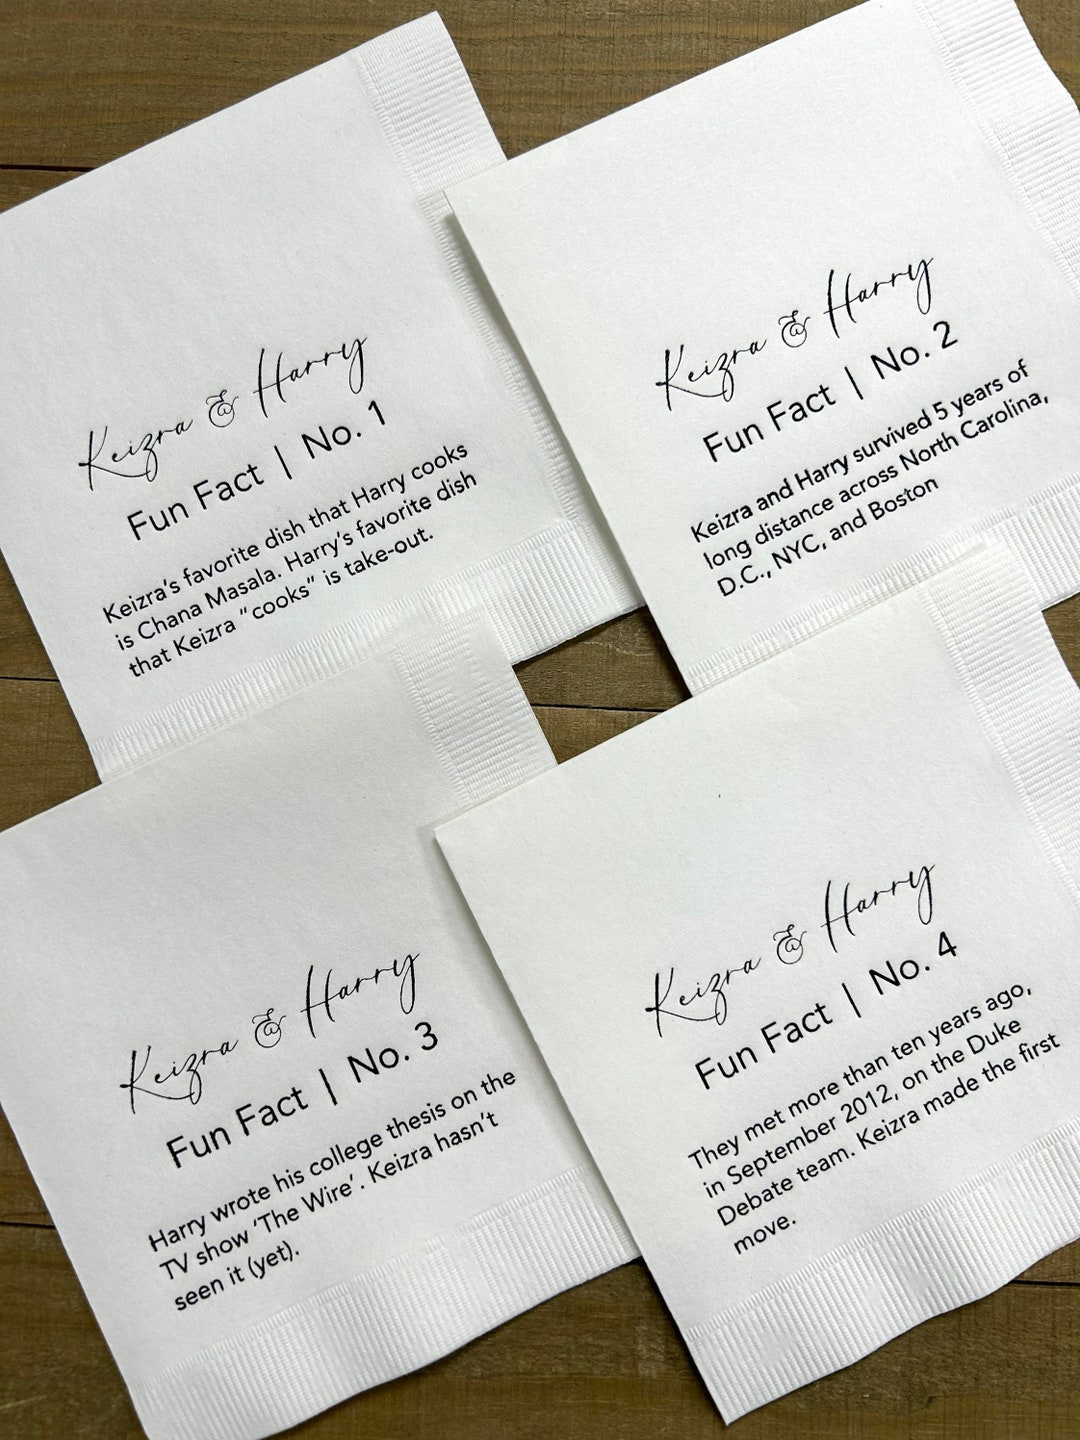 Keizra & Harry
Fun Fact | No. 1
Keizra's favorite dish that Harry cooks
is Chana Masala. Harry's favorite dish
that Keizra "cooks" is take-out.
Keizra & Harry
Fun Fact | No. 2
Keizra and Harry survived 5 years of
long distance across North Carolina,
D.C., NYC, and Boston
Keizra & Harry
Fun Fact | No. 3
Harry wrote his college thesis on the
TV show 'The Wire'. Keizra hasn't
seen it (yet).
Keizra & Harry
Fun Fact | No. 4
They met more than ten years ago,
in September 2012, on the Duke
Debate team. Keizra made the first
move.